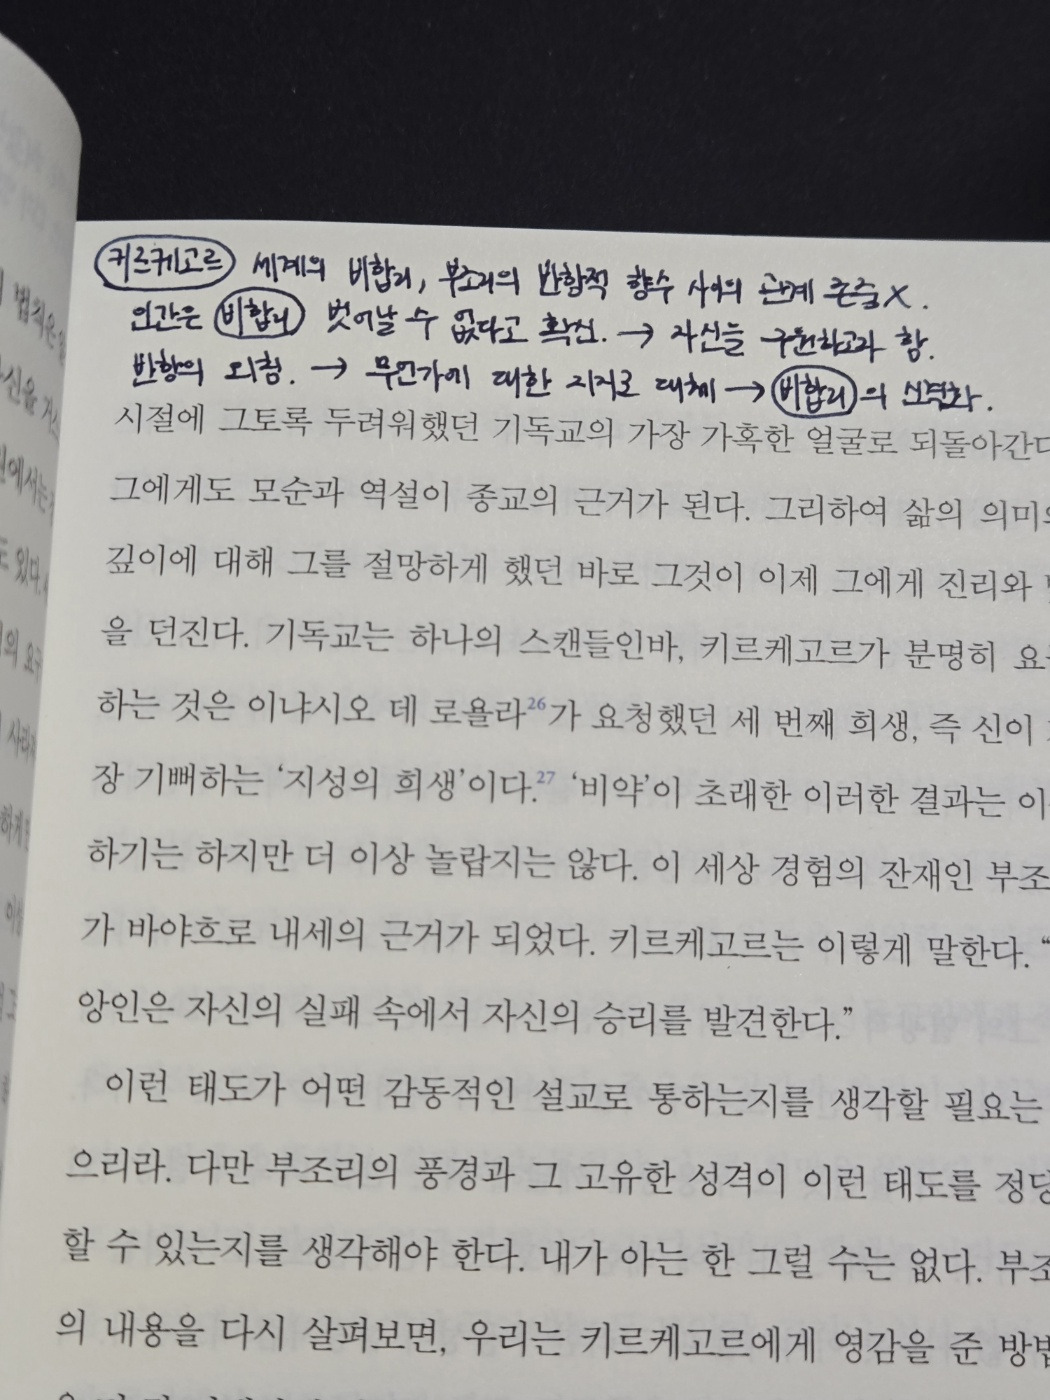 키르케고르 세계의 비합리, 부조리의 반항적 향수 사이의 관계 존중X.
인간은 비합리 벗어날 수 없다고 확신. → 자신을 구원하고자 함.
반항의 외침. → 무언가에 대한 지지로 대체 → 비합리의 신격화.
시절에 그토록 두려워했던 기독교의 가장 가혹한 얼굴로 되돌아간다
그에게도 모순과 역설이 종교의 근거가 된다. 그리하여 삶의 의미와
깊이에 대해 그를 절망하게 했던 바로 그것이 이제 그에게 진리와
을 던진다. 기독교는 하나의 스캔들인바, 키르케고르가 분명히 요구
하는 것은 이냐시오 데 로욜라26가 요청했던 세 번째 희생, 즉 신이
장 기뻐하는 ‘지성의 희생’이다.27 ‘비약’이 초래한 이러한 결과는 이
하기는 하지만 더 이상 놀랍지는 않다. 이 세상 경험의 잔재인 부조
가 바야흐로 내세의 근거가 되었다. 키르케고르는 이렇게 말한다. “
앙인은 자신의 실패 속에서 자신의 승리를 발견한다.”
이런 태도가 어떤 감동적인 설교로 통하는지를 생각할 필요는
으리라. 다만 부조리의 풍경과 그 고유한 성격이 이런 태도를 정당
할 수 있는지를 생각해야 한다. 내가 아는 한 그럴 수는 없다. 부조
의 내용을 다시 살펴보면, 우리는 키르케고르에게 영감을 준 방법